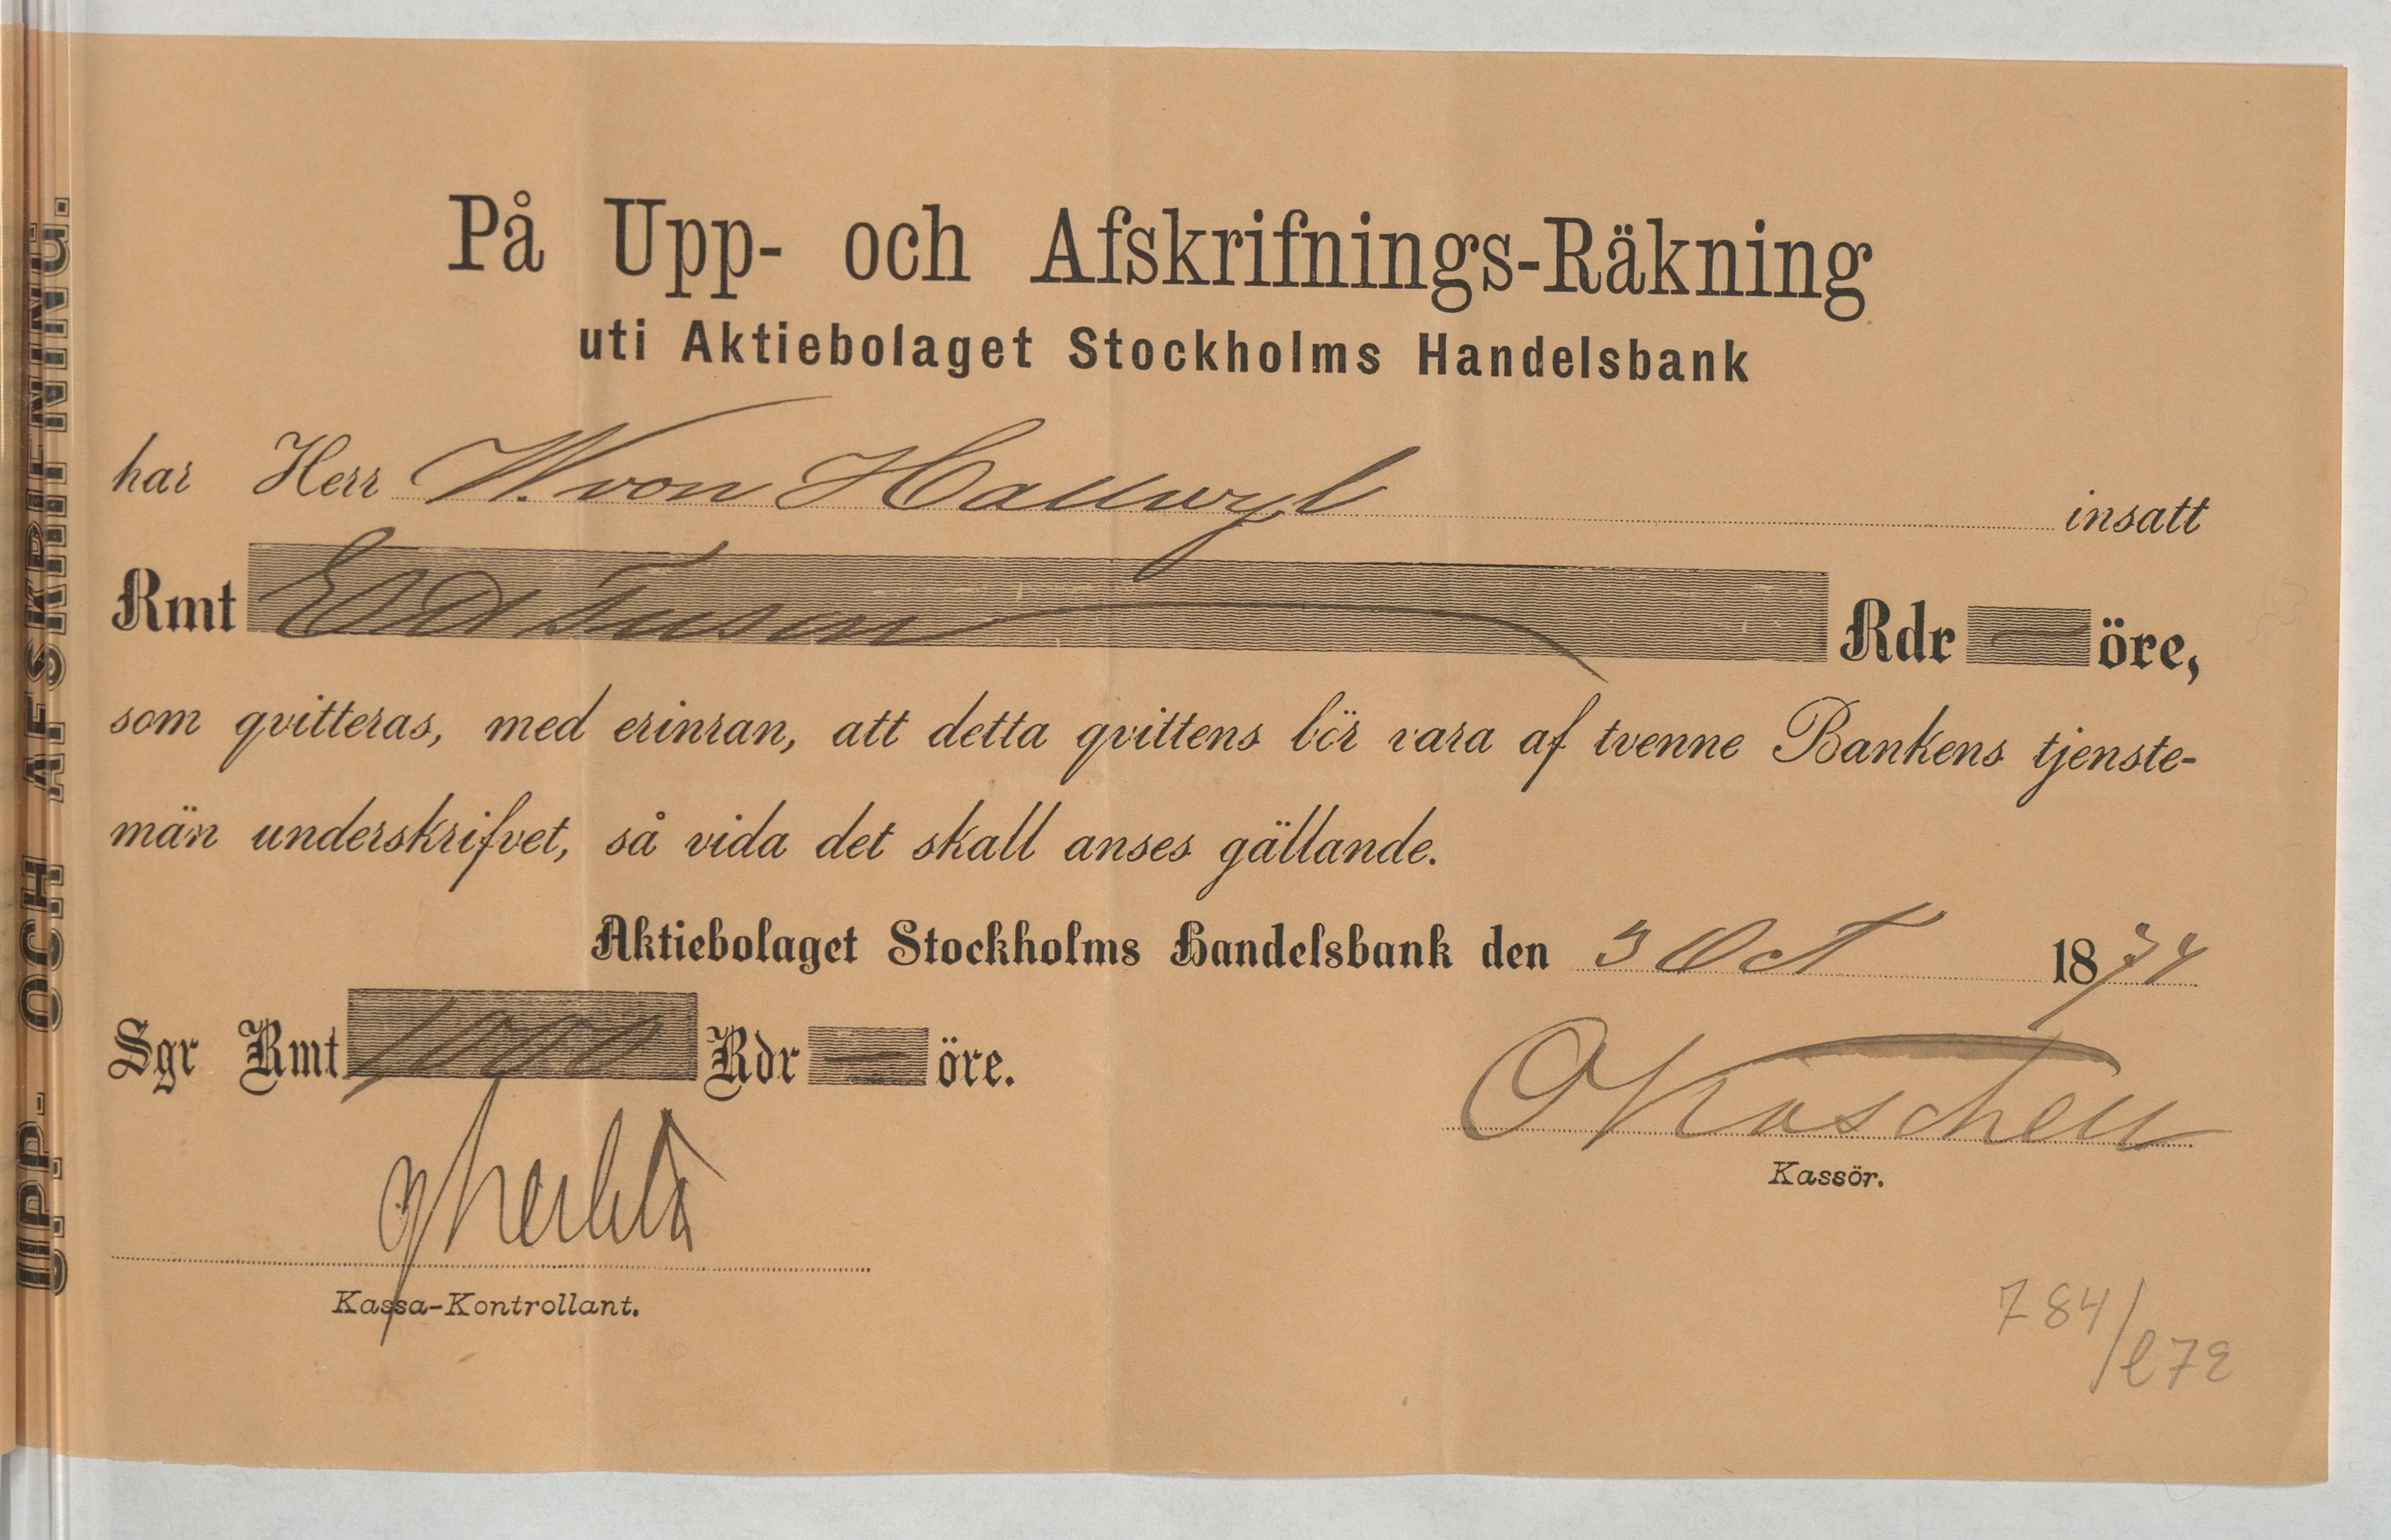 UPP- OCH AFSKRIFNING.
På Upp- och Afskrifnings-Räkning
uti Aktiebolaget Stockholms Handelsbank
har Herr W. von Hallwyl insatt
Rmt Ett Tusen — Rdr — öre,
som qvitteras, med erinran, att detta qvittens bör vara af tvenne Bankens tjenste-
män underskrifvet, så vida det skall anses gällande.
Aktiebolaget Stockholms Handelsbank den 3 Oct 1874
Sgr Rmt 1000 Rdr — öre.
Kassör.
Kassa-Kontrollant.
784/